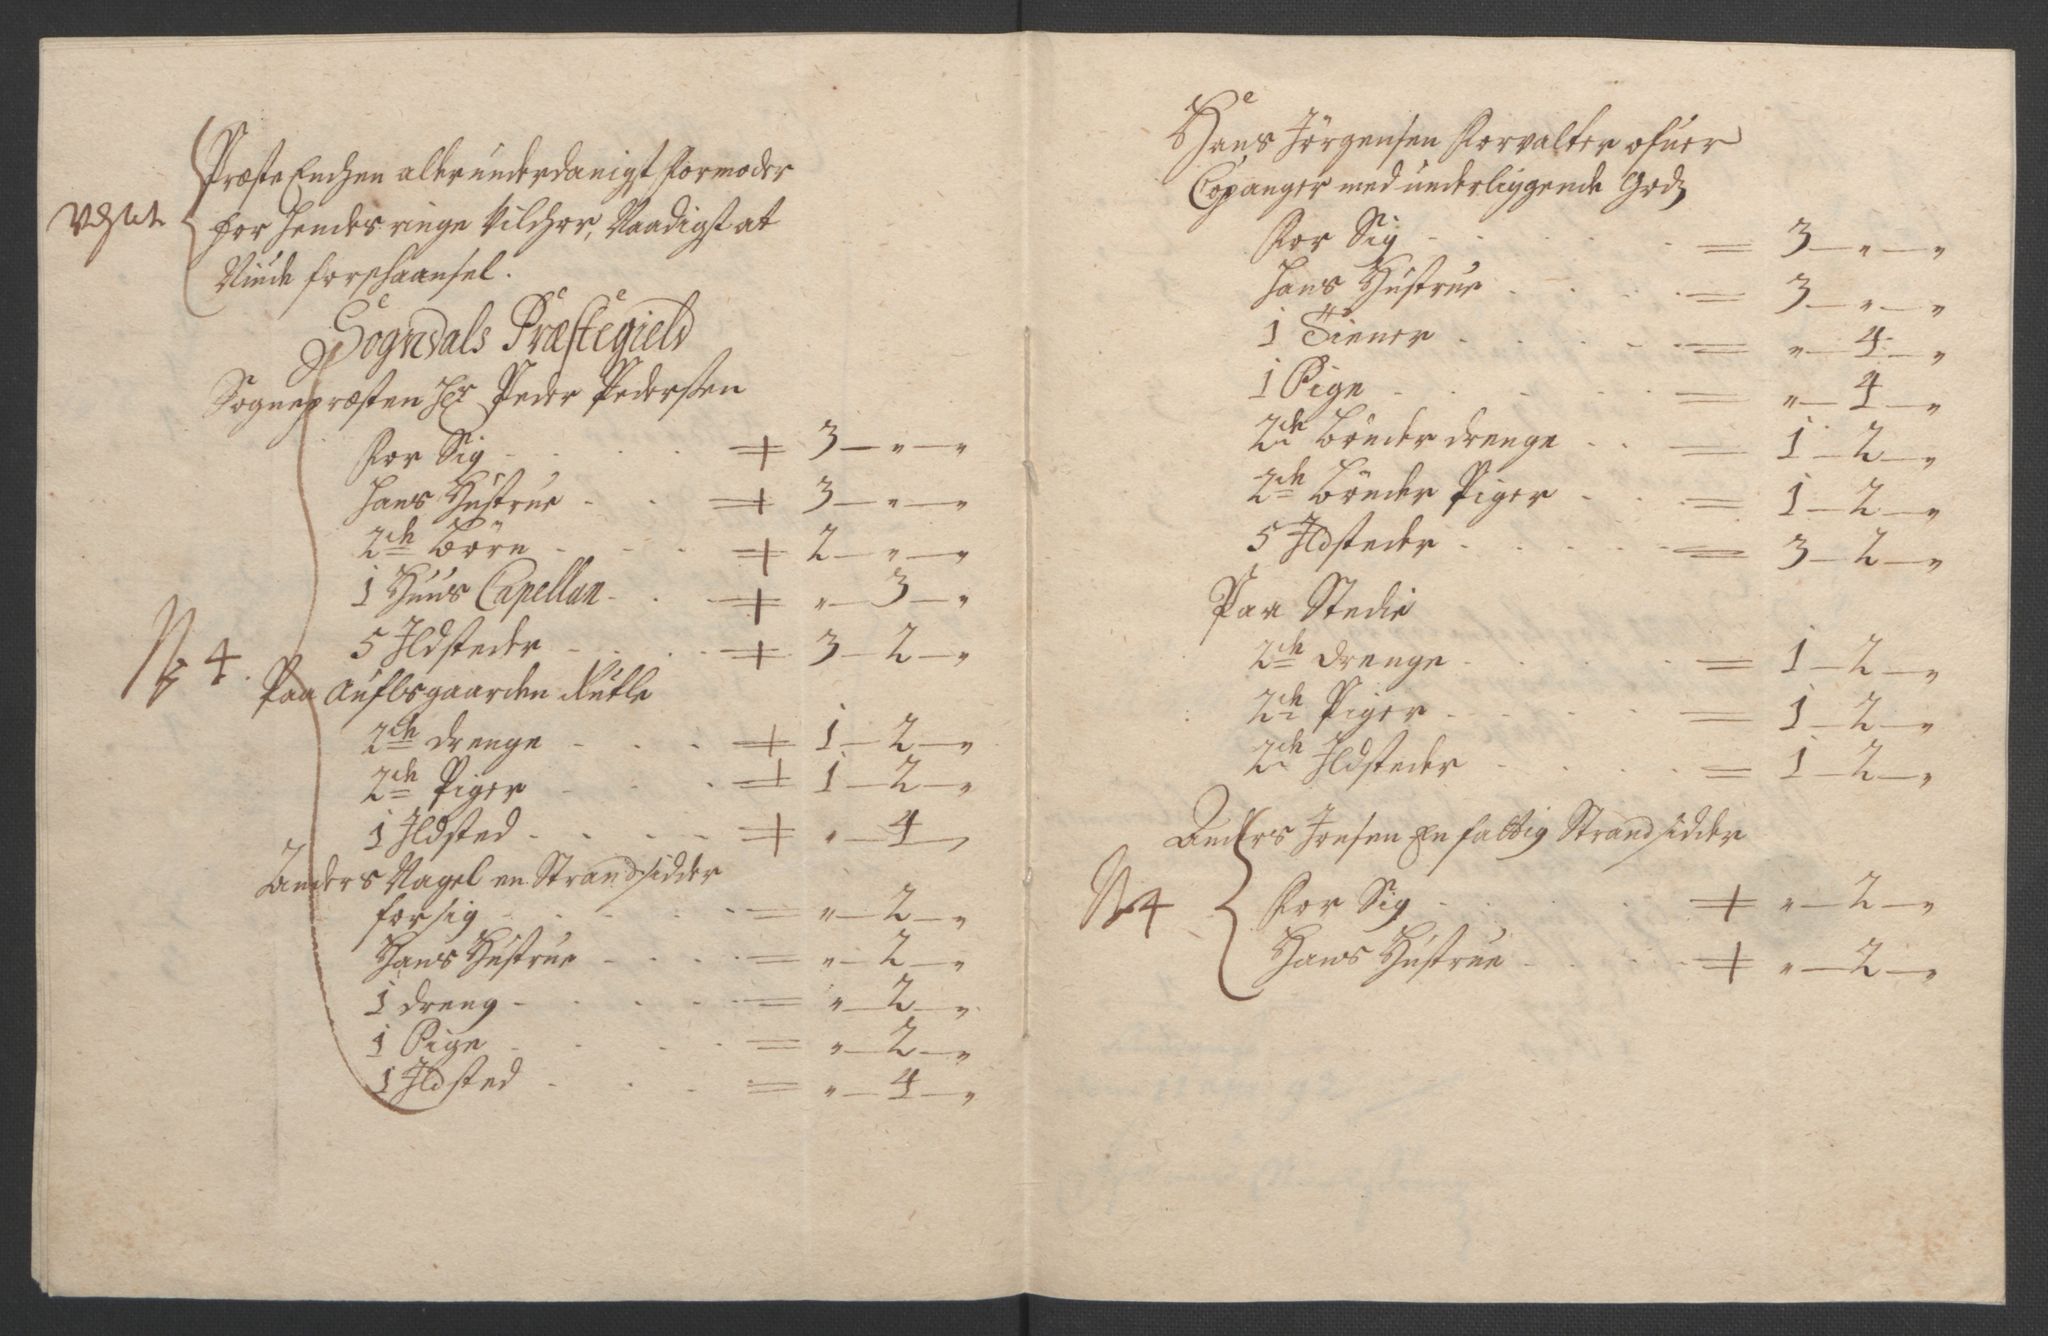 Præste Enchen allerunderdanigst formoder
for hendes ringe vilchor, Naadigst at
Niude forschaansel.
Sogndals Præstegield
Sognepræsten Hr Peder Pedersen
For Sig = 3 — „ — „
Hans Hustrue = 3 — „ — „
2de Börn = 2 — „ — „
1 Huus Capellan = „ — 3 — „
5 Ildsteder = 3 — 2 — „
N 4.
Paa Aufls gaarden Nutle
2de drenge = 1 — 2 — „
2de Piger = 1 — 2 — „
1 Ildsted = „ — 4 — „
Anders Nagel en Strandsidder
for sig = „ — 2 — „
Hans Hustrue = „ — 2 — „
1 dreng = „ — 2 — „
1 Pige = „ — 2 — „
1 Ildsted = „ — 4 — „
Hans Jörgensen Forvalter ofuer
Copanger med underliggende Grdz
For Sig = 3 — „ — „
Hans Hustrue = 3 — „ — „
1 Tiener = „ — 4 — „
1 Pige = „ — 4 — „
2de Bönder drenge = 1 — 2 — „
2de Bönder Piger = 1 — 2 — „
5 Ildsteder = 3 — 2 — „
Paa Stedie
2de drenge = 1 — 2 — „
2de Piger = 1 — 2 — „
2de Ildsteder = 1 — 2 — „
Anders Jensen En fattig Strandsidder
N 4
For Sig = „ — 2 — „
Hans Hustrue = „ — 2 — „